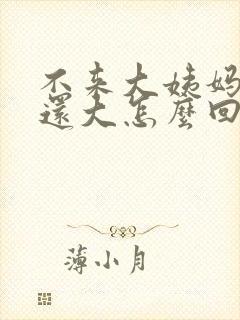 不来大姨妈
还大怎麽回
薄小月